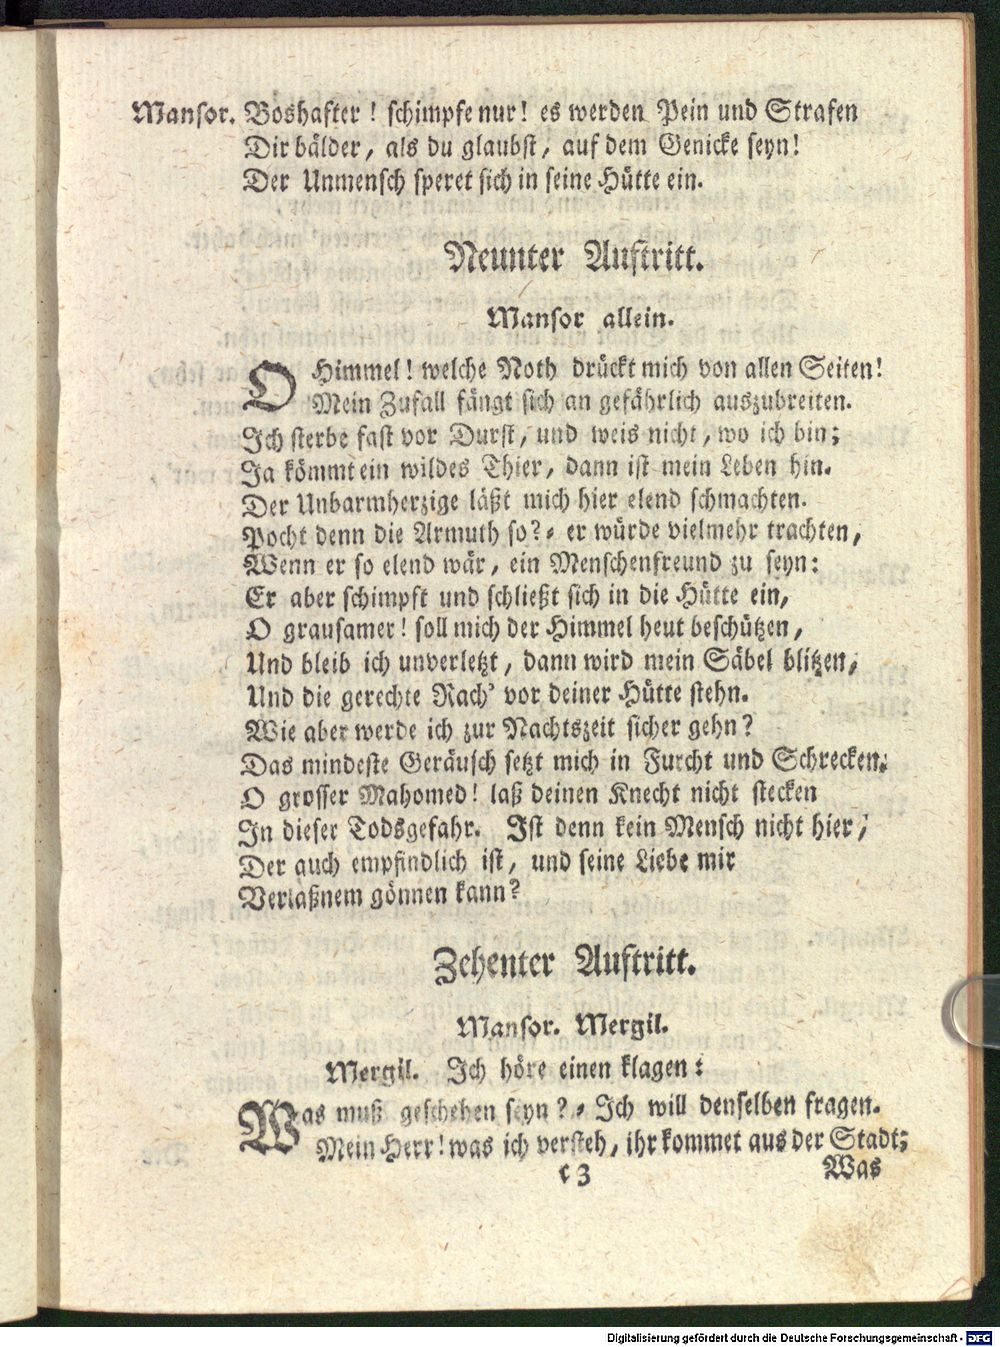 Mansor. Boshafter! schimpfe nur! es werden Pein und Strafen
Dir bälder, als du glaubst, auf dem Genicke seyn!
Der Unmensch speret sich in seine Hütte ein.
Neunter Auftritt.
Mansor allein.
O Himmel! welche Noth drückt mich von allen Seiten!
Mein Zufall fängt sich an gefährlich auszubreiten.
Ich sterbe fast vor Durst, und weis nicht, wo ich bin;
Ja kömmt ein wildes Thier, dann ist mein Leben hin.
Der Unbarmherzige läßt mich hier elend schmachten.
Pocht denn die Armuth so? - er würde vielmehr trachten,
Wenn er so elend wär, ein Menschenfreund zu seyn:
Er aber schimpft und schließt sich in die Hütte ein,
O grausamer! soll mich der Himmel heut beschützen,
Und bleib ich unverletzt, dann wird mein Säbel blitzen,
Und die gerechte Rach' vor deiner Hütte stehn.
Wie aber werde ich zur Nachtszeit sicher gehn?
Das mindeste Geräusch setzt mich in Furcht und Schrecken.
O grosser Mahomed! laß deinen Knecht nicht stecken
In dieser Todsgefahr. Ist denn kein Mensch nicht hier,
Der auch empfindlich ist, und seine Liebe mir
Verlaßnem gönnen kann?
Zehenter Auftritt.
Mansor. Mergil.
Mergil. Ich höre einen klagen:
Was muß geschehen seyn? - Ich will denselben fragen.
Mein Herr! was ich versteh, ihr kommet aus der Stadt;
c 3 Was
Digitalisierung gefördert durch die Deutsche Forschungsgemeinschaft - DFG